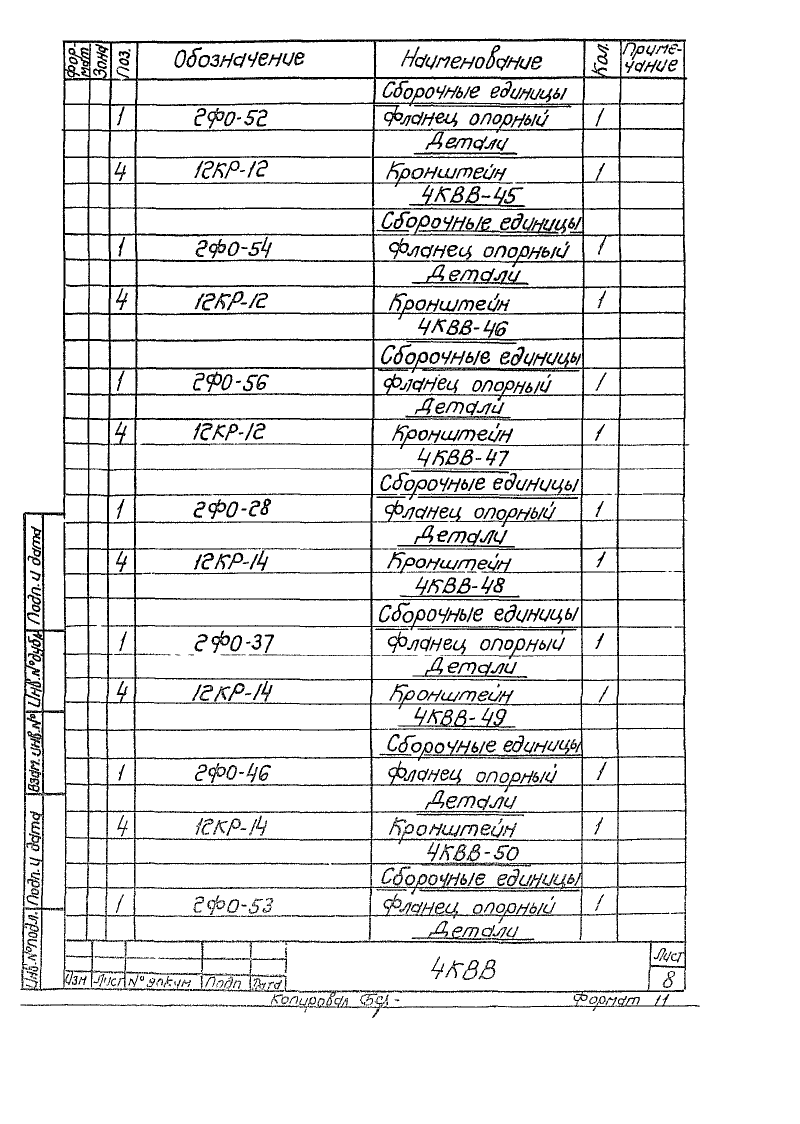 Фор-мат Зона Поз. Обозначение Наименование Кол. Приме-чание
Сборочные единицы
1 2ФО-52 Фланец опорный 1
Детали
4 12КР-12 Кронштейн 1
4КВВ-45
Сборочные единицы
1 2ФО-54 Фланец опорный 1
Детали
4 12КР-12 Кронштейн 1
4КВВ-46
Сборочные единицы
1 2ФО-56 Фланец опорный 1
Детали
4 12КР-12 Кронштейн 1
4КВВ-47
Сборочные единицы
1 2ФО-28 Фланец опорный 1
Детали
4 12КР-14 Кронштейн 1
4КВВ-48
Сборочные единицы
1 2ФО-37 Фланец опорный 1
Детали
4 12КР-14 Кронштейн 1
4КВВ-49
Сборочные единицы
1 2ФО-46 Фланец опорный 1
Детали
4 12КР-14 Кронштейн 1
4КВВ-50
Сборочные единицы
1 2ФО-53 Фланец опорный 1
Детали
Подп. и дата
Инв.№дубл.
Взам.инв.№
Подп. и дата
Инв.№подл.
Изм Лист № докум Подп Дата
4КВВ
Лист
8
Копировал
Формат 11